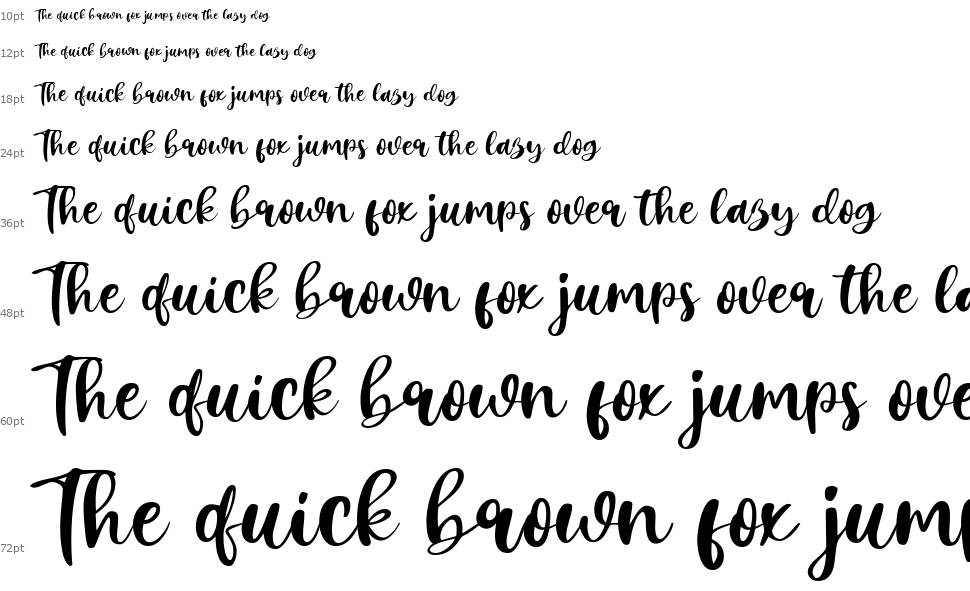 10pt The quick brown fox jumps over the lazy dog
12pt The quick brown fox jumps over the lazy dog
18pt The quick brown fox jumps over the lazy dog
24pt The quick brown fox jumps over the lazy dog
36pt The quick brown fox jumps over the lazy dog
48pt The quick brown fox jumps over the la
60pt The quick brown fox jumps ove
72pt The quick brown fox jum